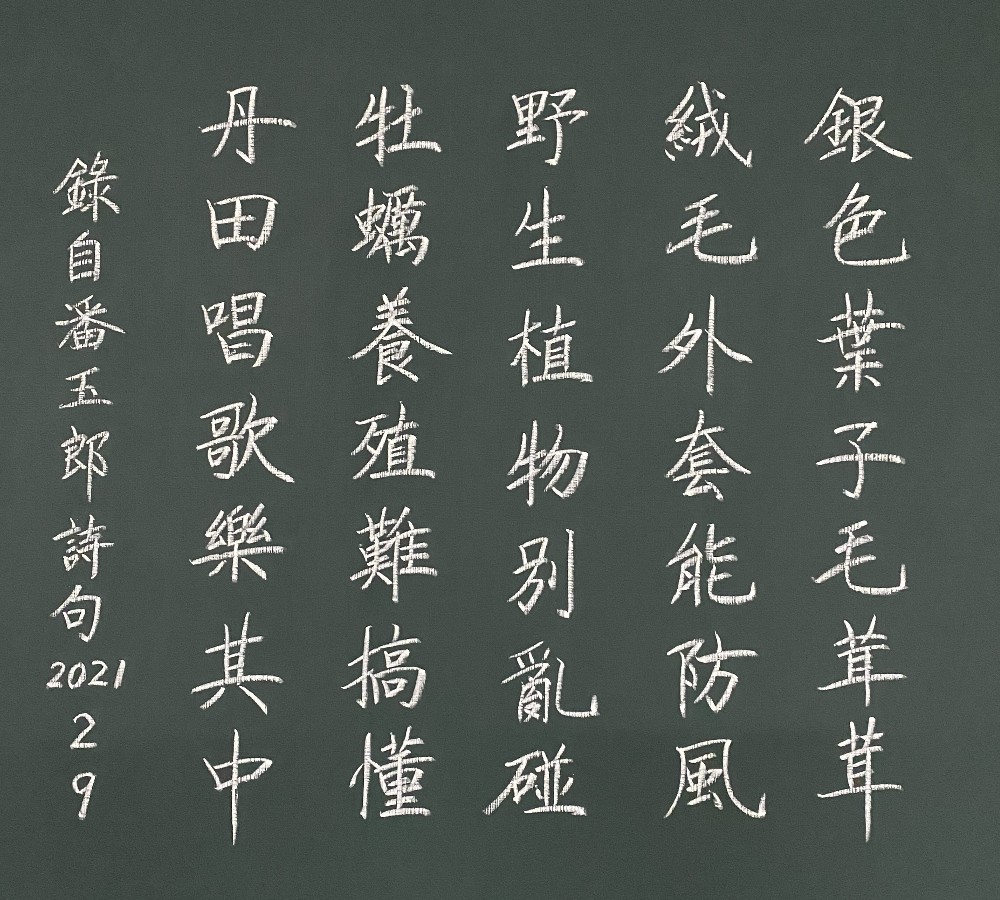 銀色葉子毛茸茸
絨毛外套能防風
野生植物別亂碰
牡蠣養殖難搞懂
丹田唱歌樂其中
錄自番五郎詩句2021 2 9